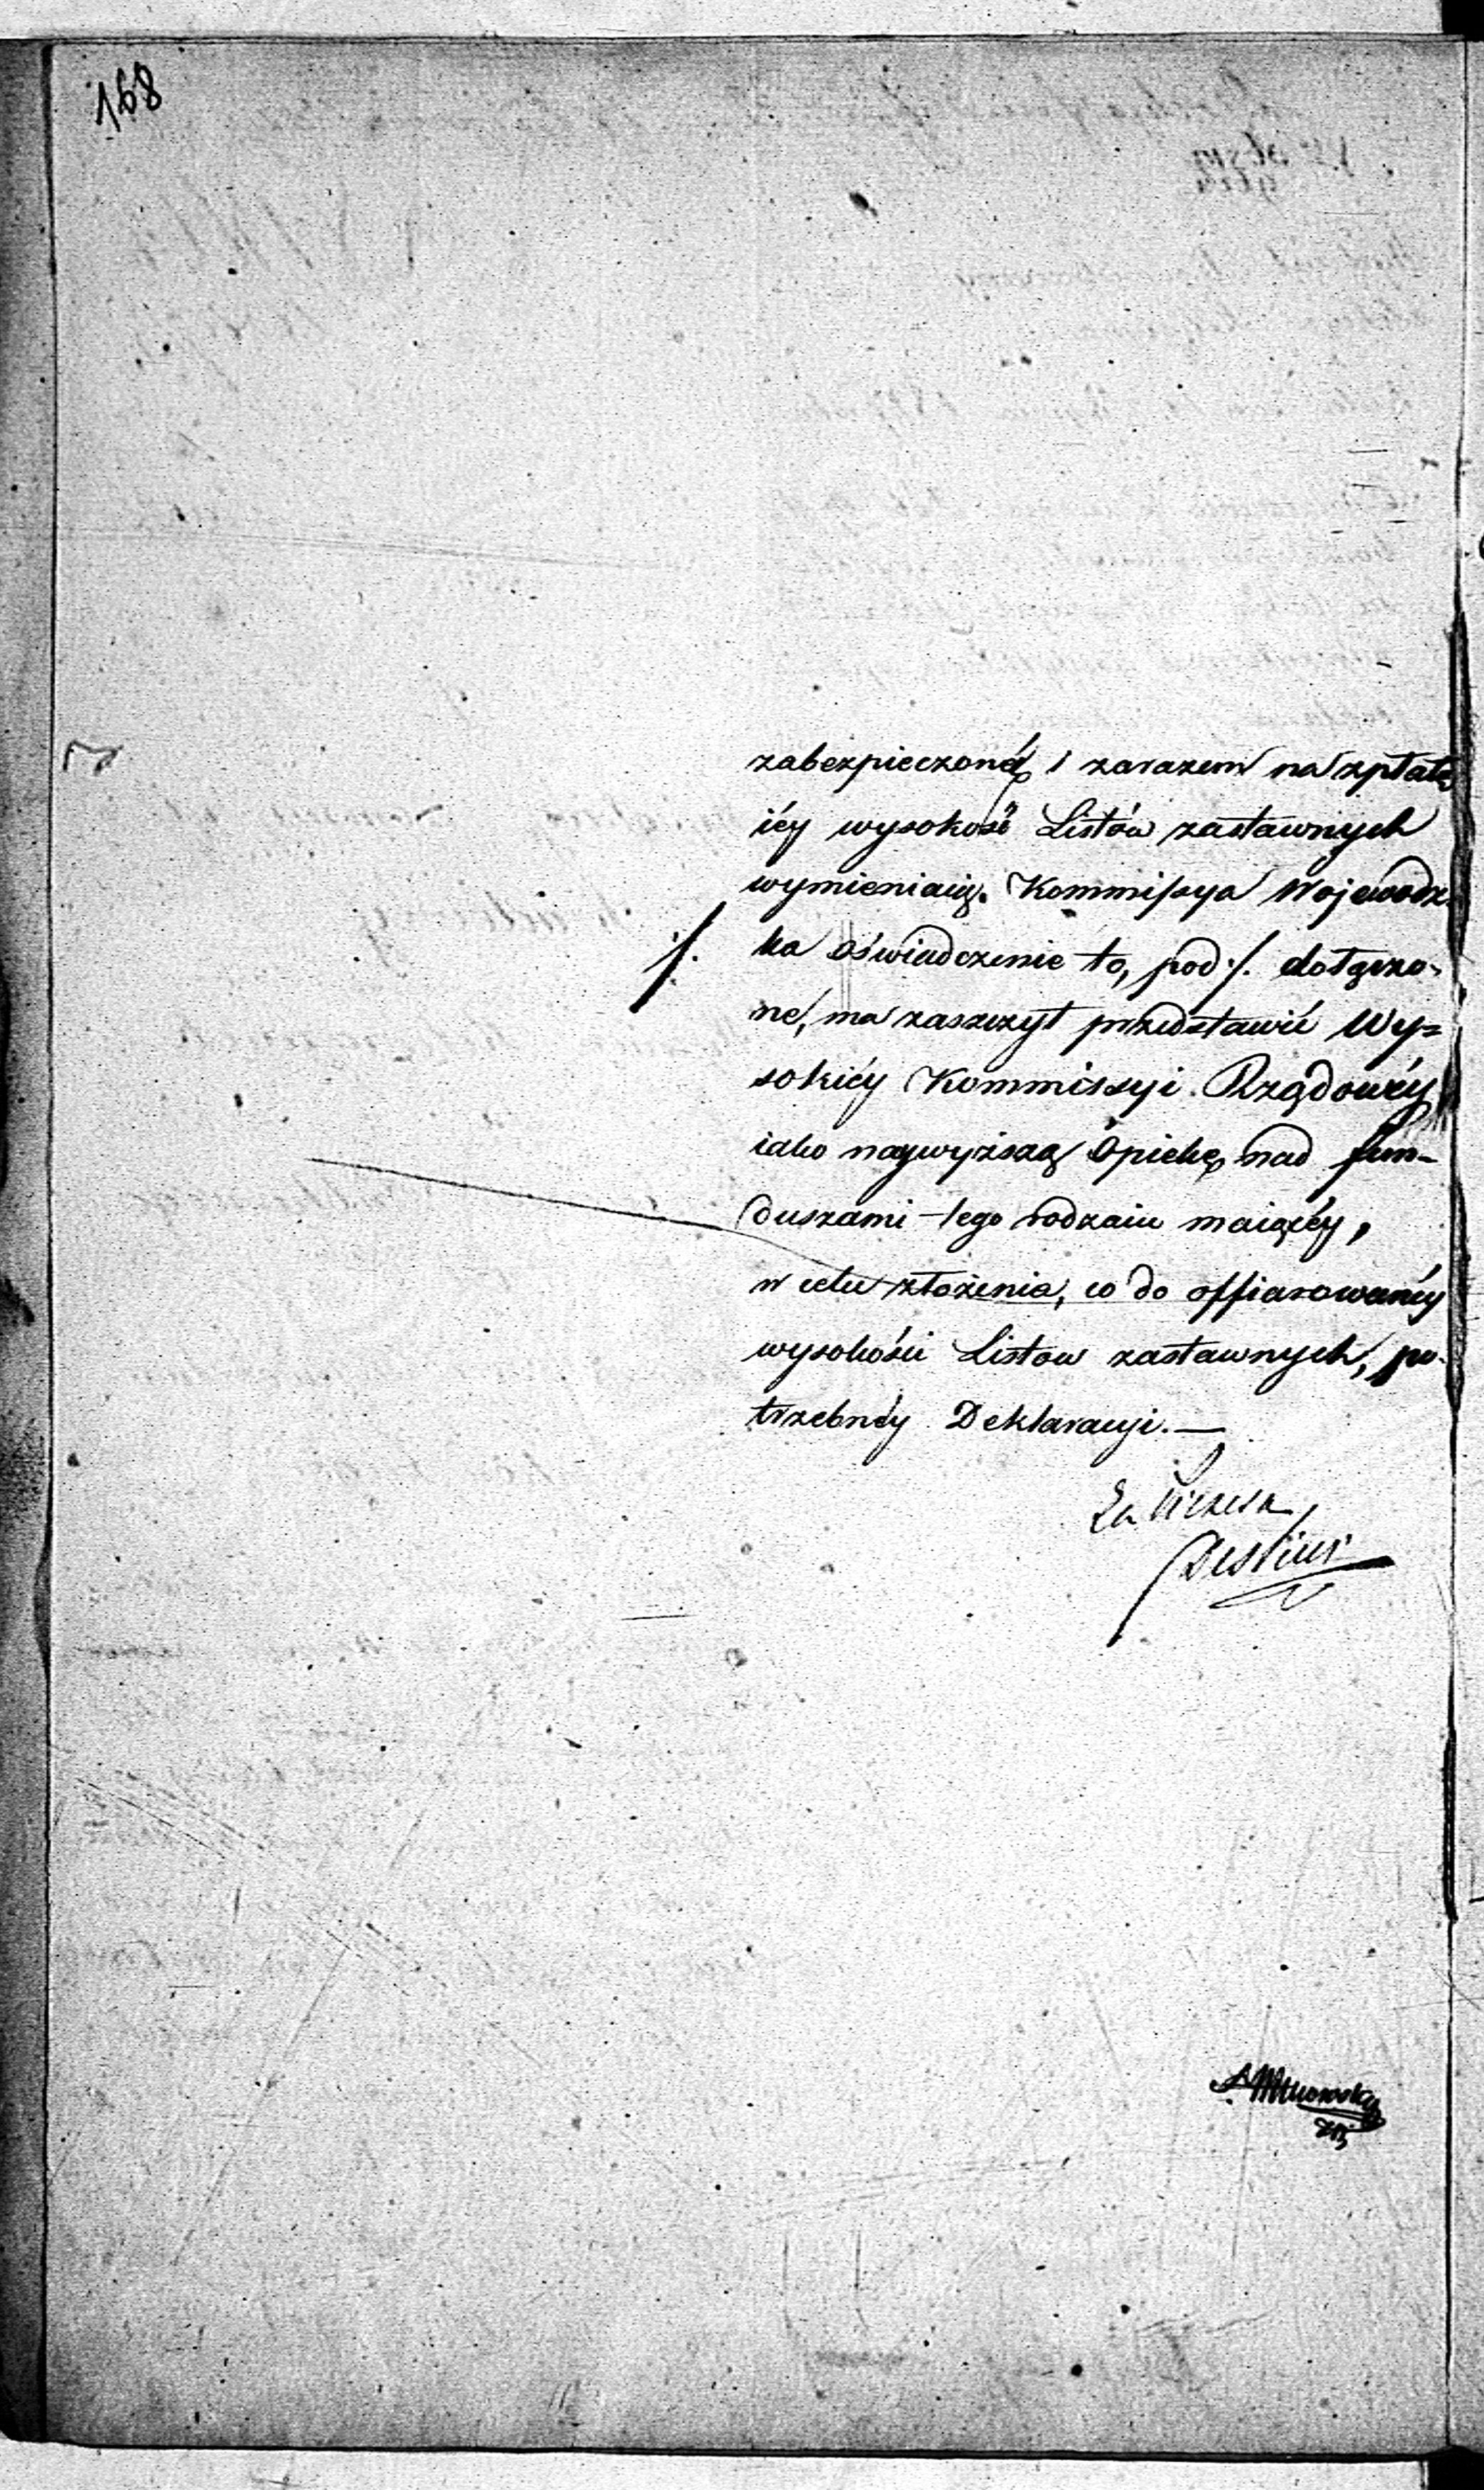 168
zabezpieczoną i zarazem na zpłatę
iéy wysokość Listów zastawnych
wymieniaią. Kommissya Wojewodz
ka oświadczenie to, pod ·/. dołączo-
·/.
né, ma zaszczyt przedstawić Wy=
sokiéy Kommissyi Rządowéy
iako naywyższą Opiekę nad fun-
duszami tego rodzaiu maiącéy,
w celu złożenia, co do offiarowanéy
wysokości Listow zastawnych, po-
trzebnéy Deklaracyi.—
Za Prezesa